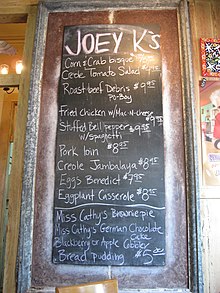 JOEY K's
Corn & Crab bisque
Creole Tomato Salad $9.95
Roast beef Debris $9.95
Po-Boy
Fried chicken w/Mac-N-cheese
Stuffed Bell pepper $9.95
w/spaghetti
Pork loin $8.95
Creole Jambalaya $8.95
Eggs Benedict $7.95
Eggplant Casserole $8.95
Miss Cathy's Brownie pie
Miss Cathy's German Chocolate
Cake
Blackberry or Apple Cobbler
Bread pudding $5.00